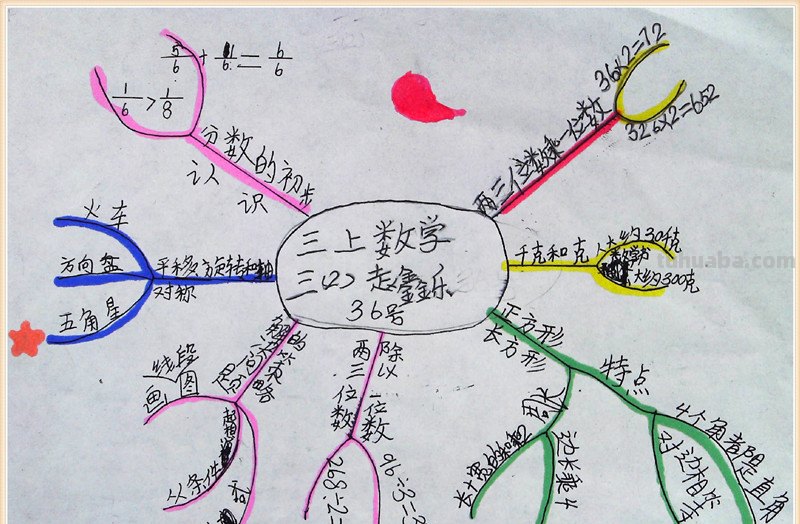 5/6 + 1/6 = 6/6
1/6 > 1/8
分数的初步
认识
两三位数乘一位数
36×2=72
326×2=652
火车
方向盘
五角星
平移旋转和轴
对称
三上数学
三(2) 赵鑫乐
36号
千克和克
人大约30千克
数学书
大约300克
tuhuaba.com
正方形
长方形
特点
4个角都是直角
对边相等
周长
长+宽的和乘2
边长乘4
除以一位数
两三位数
96÷3=3
268÷2=
线段
画图
从条件